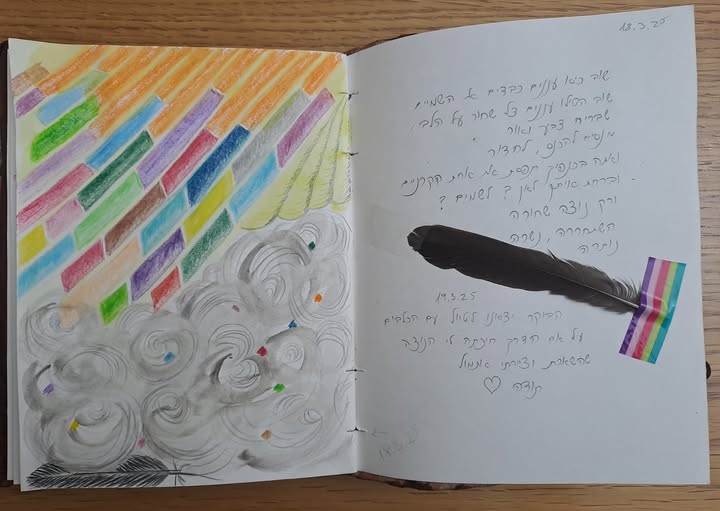 18.3.25
שוב כיסו עננים כבדים את השמיים
שוב הטילו עננים צל שחור על הלב,
שברים צבע ואור
מנסים להכנס, לחדור
ואתה בכנפיך תפסת את אחת הקרניים
וברחת איתה לאן? לשמים?
ורק נוצה שחורה
השתחררה, נשרה
נותרה
19.3.25
הבוקר יצאנו לטיול עם הכלבים
על אם הדרך חיכתה לי הנוצה
שהשארת וציירתי אתמול
תודה ♡
18.3.25